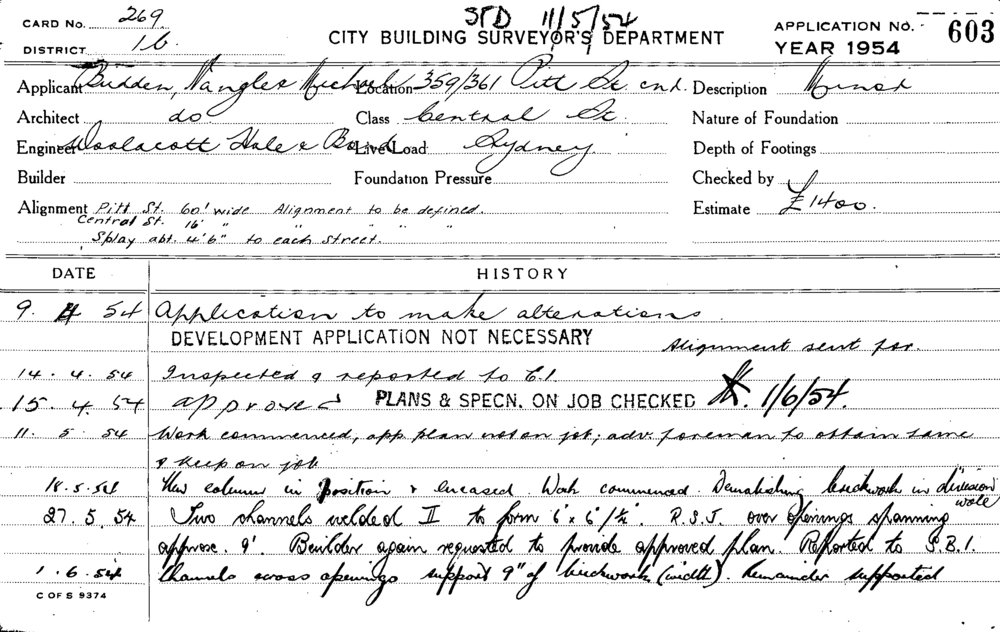 CARD No. 269
STD 11/5/54
APPLICATION No. 603
DISTRICT 1b.
CITY BUILDING SURVEYOR'S DEPARTMENT
YEAR 1954
Applicant Budden, Nangle & Michael Location 359/361 Pitt St. cnr. Description Minor
Architect do Class Central St. Nature of Foundation
Engineer Woolacott Hale & Bond Live Load Sydney Depth of Footings
Builder Foundation Pressure Checked by
Alignment Pitt St. 60' wide Alignment to be defined. Estimate £1400.
Central St. 16' " " " "
Splay abt. 4'6" to each street.
DATE HISTORY
9. 4 54 Application to make alterations.
DEVELOPMENT APPLICATION NOT NECESSARY
Alignment sent for.
14. 4. 54 Inspected & reported to C.I.
15. 4. 54 approved PLANS & SPECN. ON JOB CHECKED 1/6/54.
11. 5. 54 Work commenced, app plan not on job; adv. foreman to obtain same
& keep on job
18.5.54 New column in position & encased. Work commenced. Demolishing brickwork in division
27.5.54 Two channels welded II to form 6' x 6' R.S.J. over openings spanning
approx. 9'. Builder again requested to provide approved plan. Reported to S.B.I.
1.6.54 Channels across openings support 9" of brickwork (width). Remainder supported
C OF S 9374